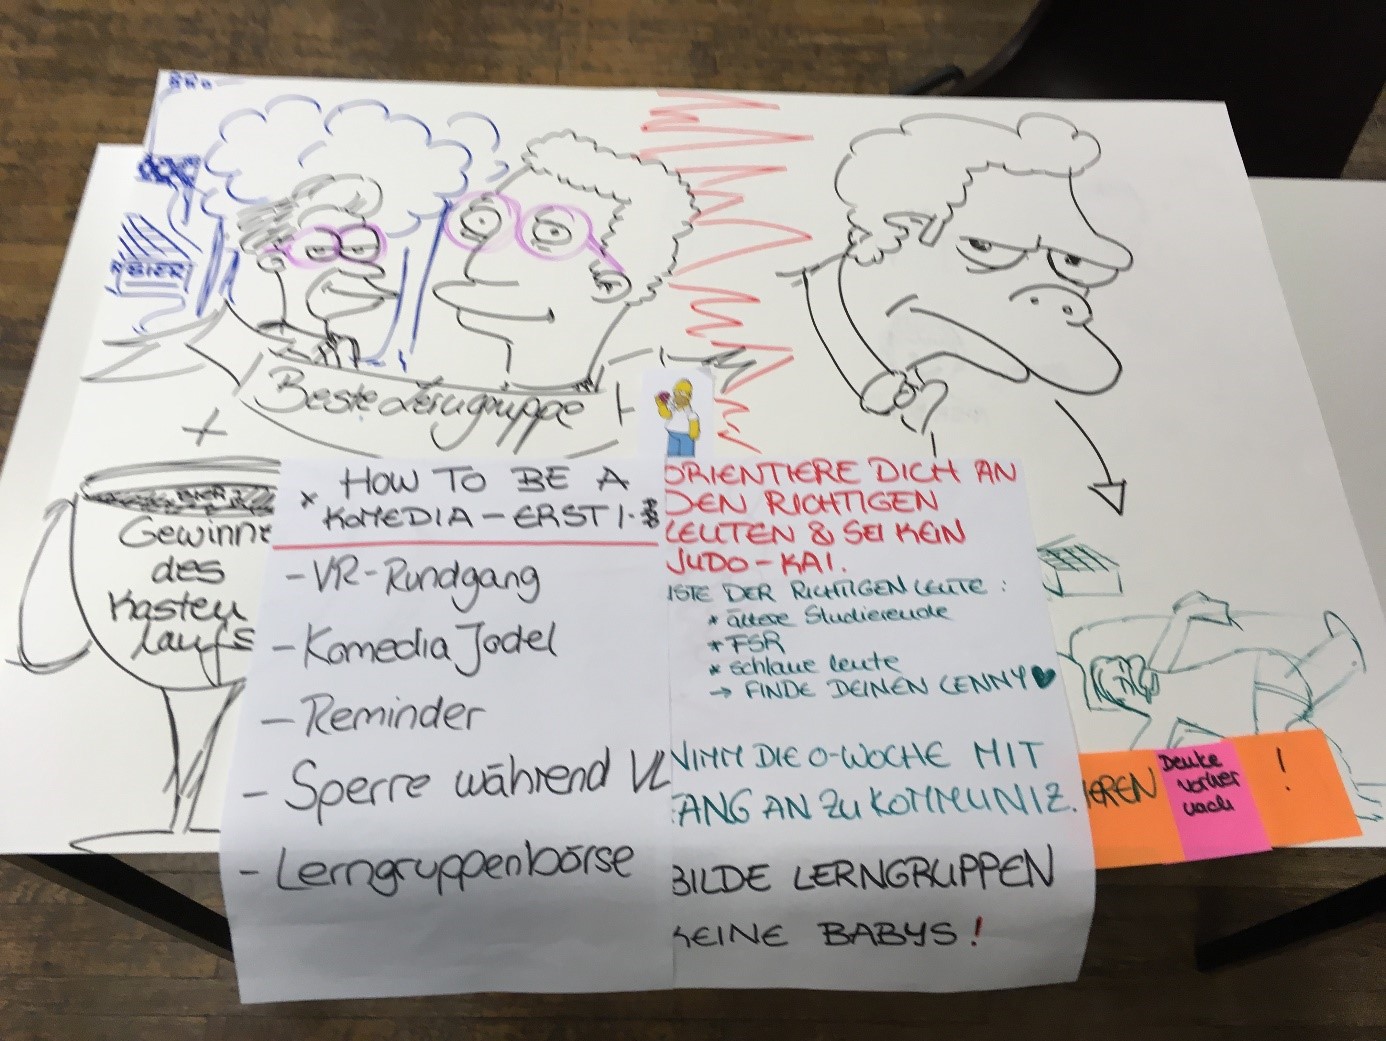 BIER
Beste Lerngruppe
+
BIER
Gewinner
des
Kasten
laufs
* HOW TO BE A
KOMEDIA-ERSTI
- VR-Rundgang
- Komedia Jodel
- Reminder
- Sperre während VL
- Lerngruppenbörse
ORIENTIERE DICH AN
DEN RICHTIGEN
LEUTEN & SEI KEIN
JUDO-KAI.
ISTE DER RICHTIGEN LEUTE:
* ältere Studierende
* FSR
* schlaue leute
→ FINDE DEINEN LENNY ♥
NIMM DIE O-WOCHE MIT
FANG AN ZU KOMMUNIZ.
IEREN
Denke
vorher
nach
!
BILDE LERNGRUPPEN
KEINE BABYS!